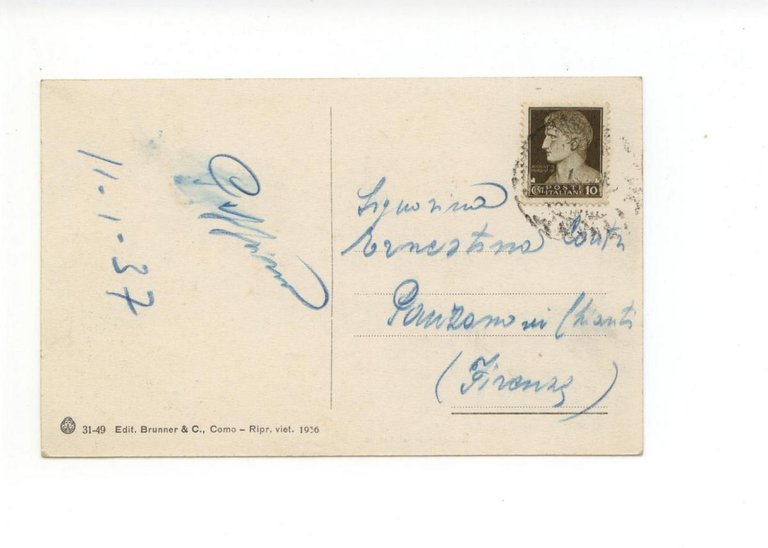 11-1-37
Signorina
Ernestina Conti
Panzano in Chianti
(Firenze)
POSTE
ITALIANE
10
31-49 Edit. Brunner & C., Como – Ripr. viet. 1936